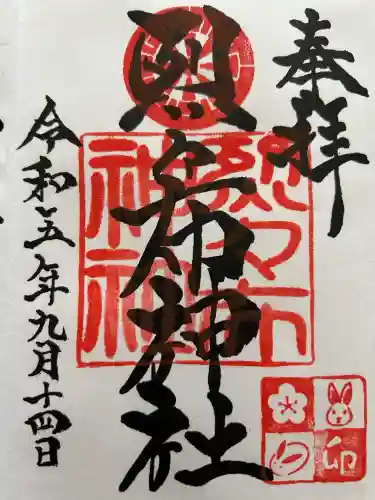 奉拝
烈々布神社
令和五年九月十四日
烈々布
神社
卯